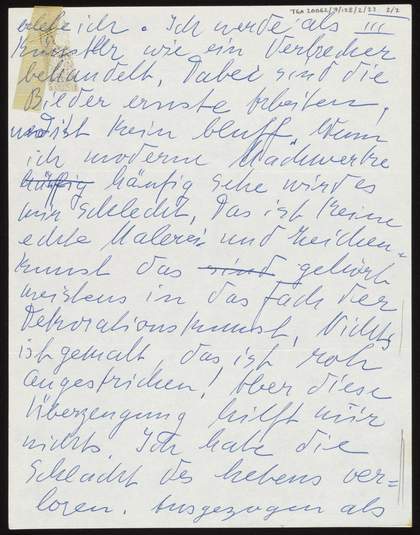 TGA 20062/4/155/2/23 2/2
ebbe ich. Ich werde als III
Künstler wie ein Verbrecher
behandelt, Dabei sind die
Bilder ernste Arbeiten,
und ist kein bluff, Wenn
ich moderne Machwerke
häufig häufig sehe wird es
mir schlecht, Das ist keine
echte Malerei und Zeichen-
kunst das sind gehört
meistens in das Fach der
Dekorationskunst, Nichts
ist gemalt, das ist roh
angestrichen! Aber diese
Überzeugung hilft mir
nichts, Ich habe die
Schlacht des Lebens ver=
loren. Ausgezogen als